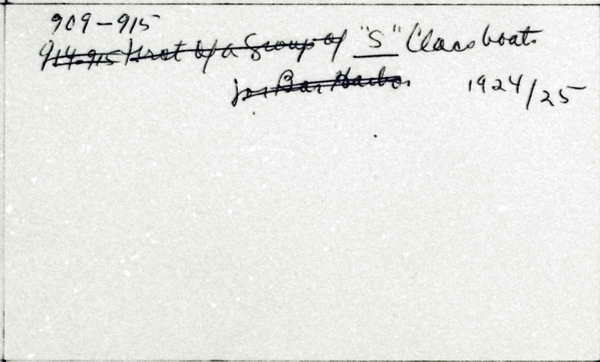 909-915
914-915 First of a Group of "S" Class boats
for Bar Harbor 1924/25